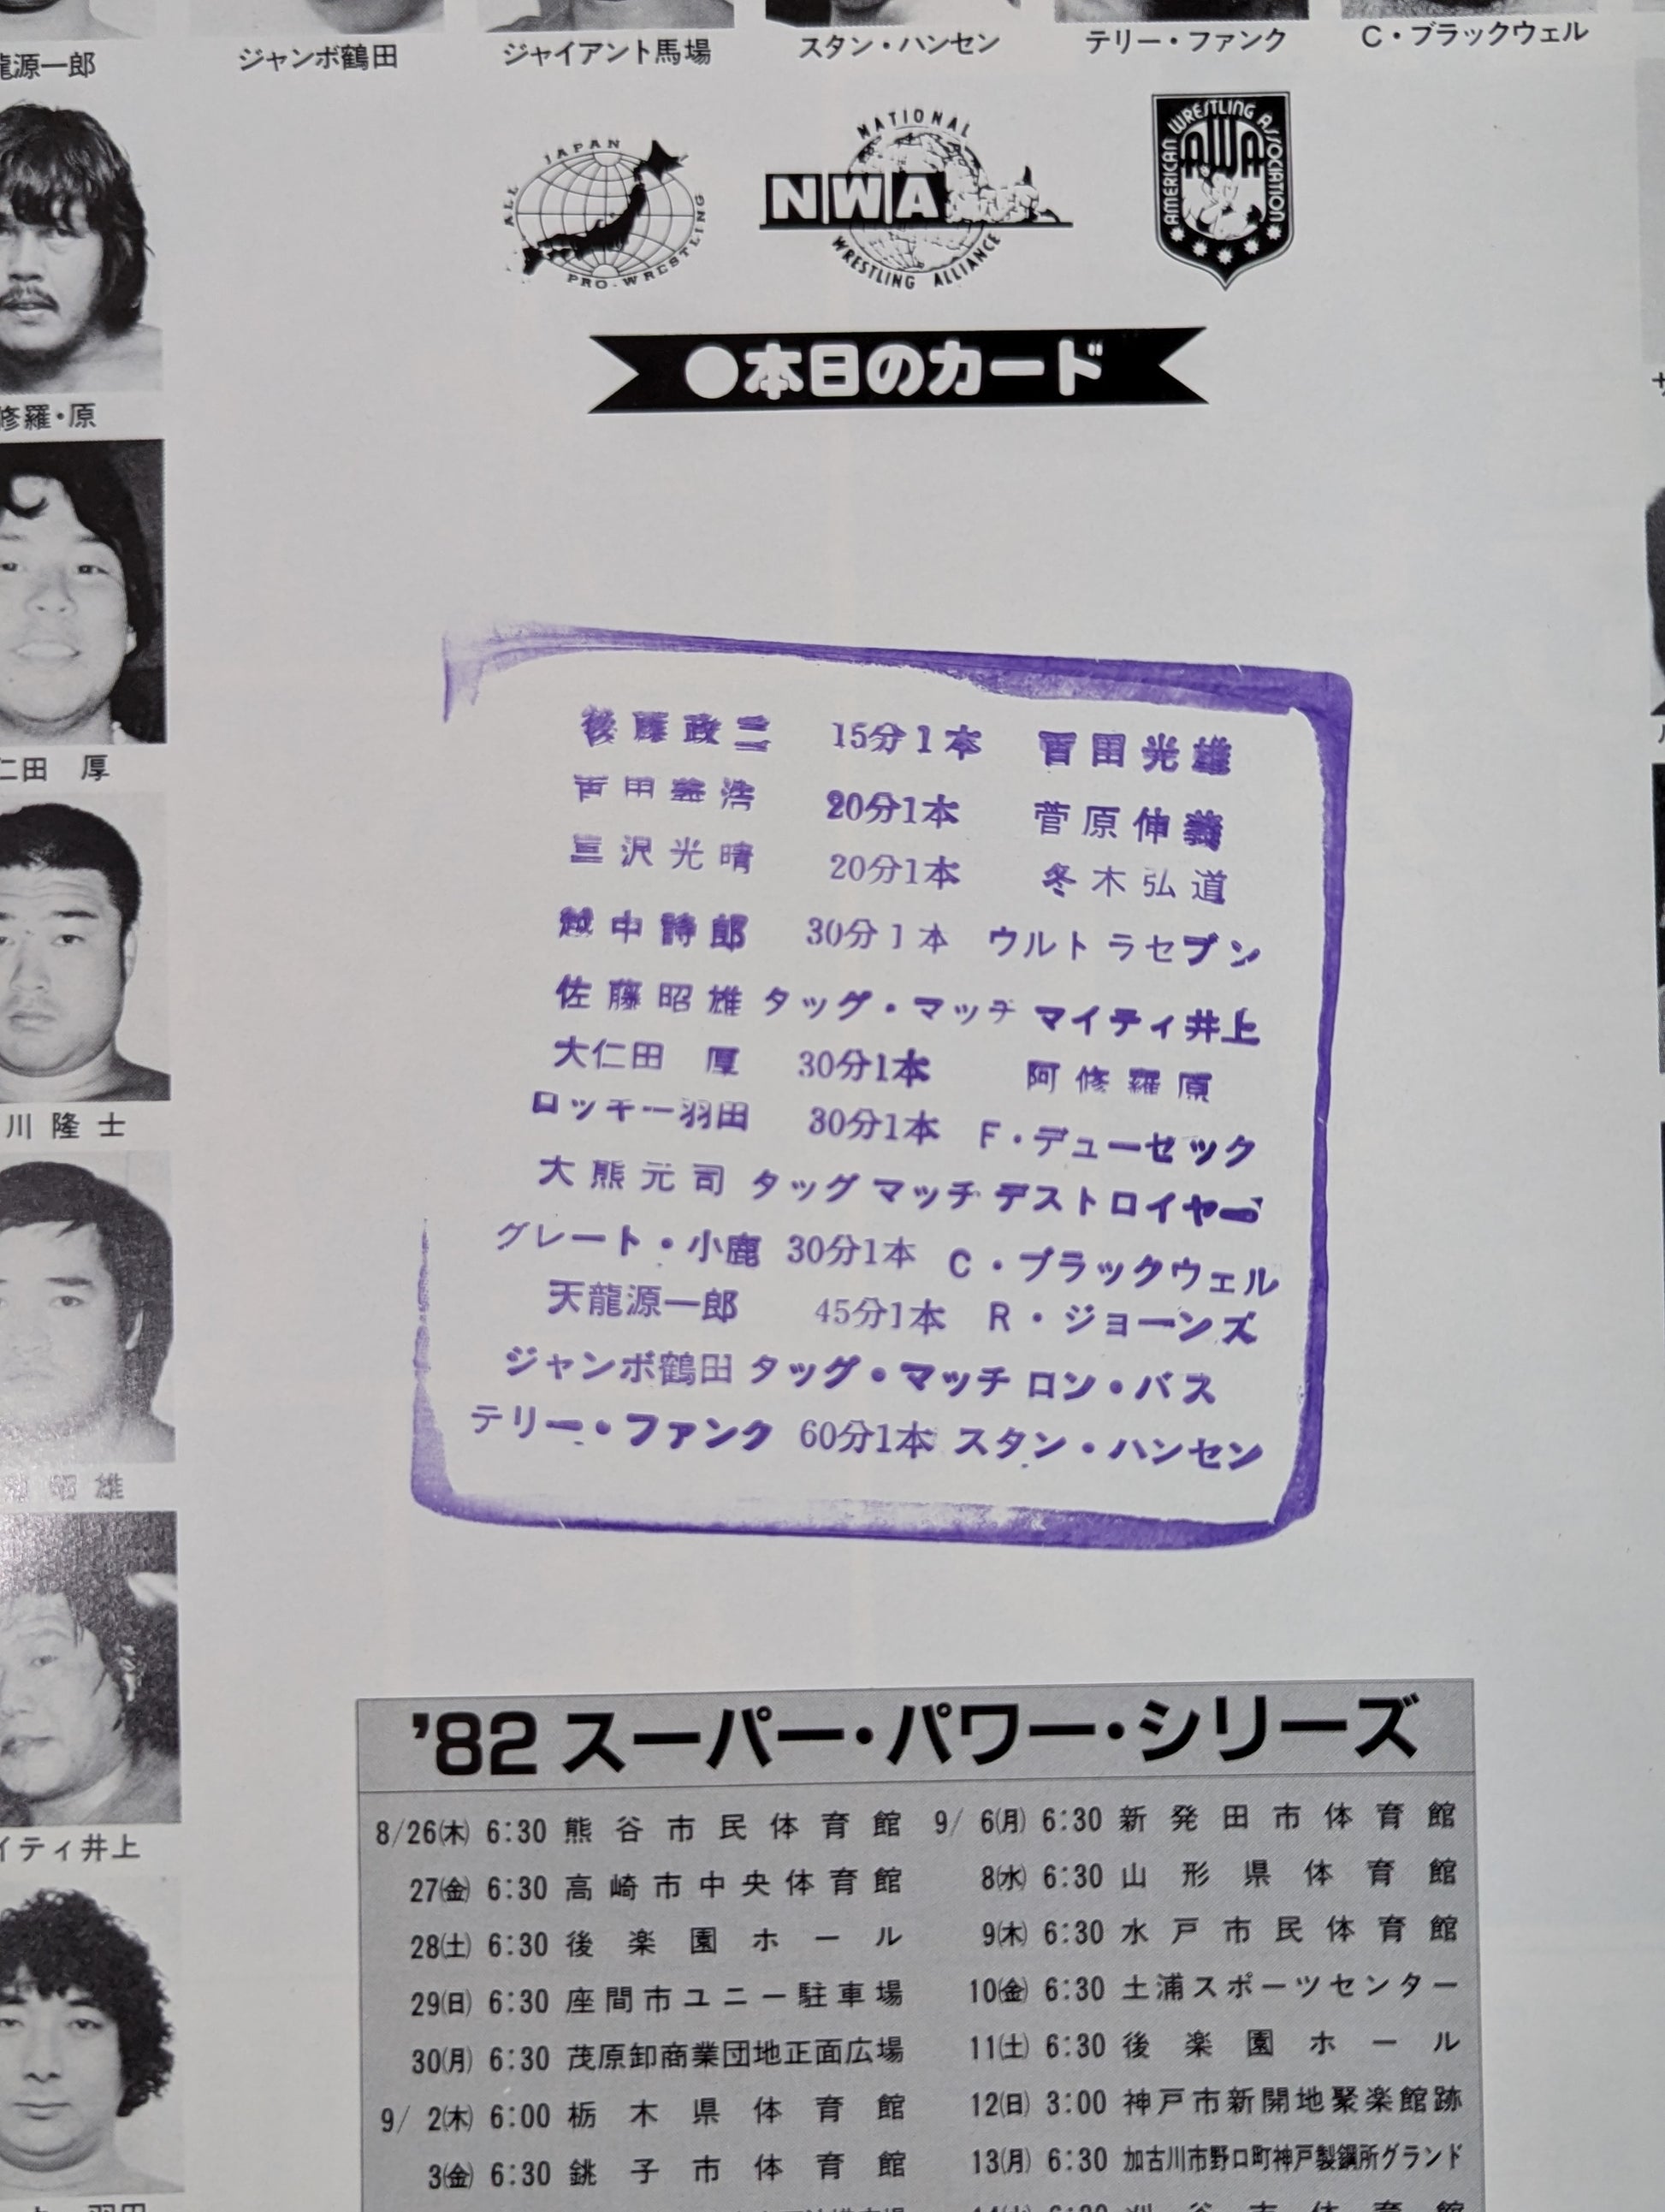 龍源一郎 ジャンボ鶴田 ジャイアント馬場 スタン・ハンセン テリー・ファンク C・ブラックウェル
ALL JAPAN PRO-WRESTLING
NATIONAL NWA WRESTLING ALLIANCE
AMERICAN WRESTLING ASSOCIATION AWA
●本日のカード
修羅・原
仁田 厚
川隆士
昭雄
イティ井上
羽田
後藤政二 15分1本 百田光雄
百田義浩 20分1本 菅原伸義
三沢光晴 20分1本 冬木弘道
越中詩郎 30分1本 ウルトラセブン
佐藤昭雄 タッグ・マッチ マイティ井上
大仁田 厚 30分1本 阿修羅原
ロッキー羽田 30分1本 F・デューセック
大熊元司 タッグマッチ デストロイヤー
グレート・小鹿 30分1本 C・ブラックウェル
天龍源一郎 45分1本 R・ジョーンズ
ジャンボ鶴田 タッグ・マッチ ロン・バス
テリー・ファンク 60分1本 スタン・ハンセン
'82 スーパー・パワー・シリーズ
8/26(木) 6:30 熊谷市民体育館
27(金) 6:30 高崎市中央体育館
28(土) 6:30 後楽園ホール
29(日) 6:30 座間市ユニー駐車場
30(月) 6:30 茂原卸商業団地正面広場
9/ 2(木) 6:00 栃木県体育館
3(金) 6:30 銚子市体育館
9/ 6(月) 6:30 新発田市体育館
8(水) 6:30 山形県体育館
9(木) 6:30 水戸市民体育館
10(金) 6:30 土浦スポーツセンター
11(土) 6:30 後楽園ホール
12(日) 3:00 神戸市新開地聚楽館跡
13(月) 6:30 加古川市野口町神戸製鋼所グランド